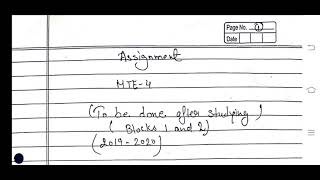 Page No. 1
Date
Assignment
MTE-4
(To be done after studying)
(Blocks 1 and 2)
(2019-2020)